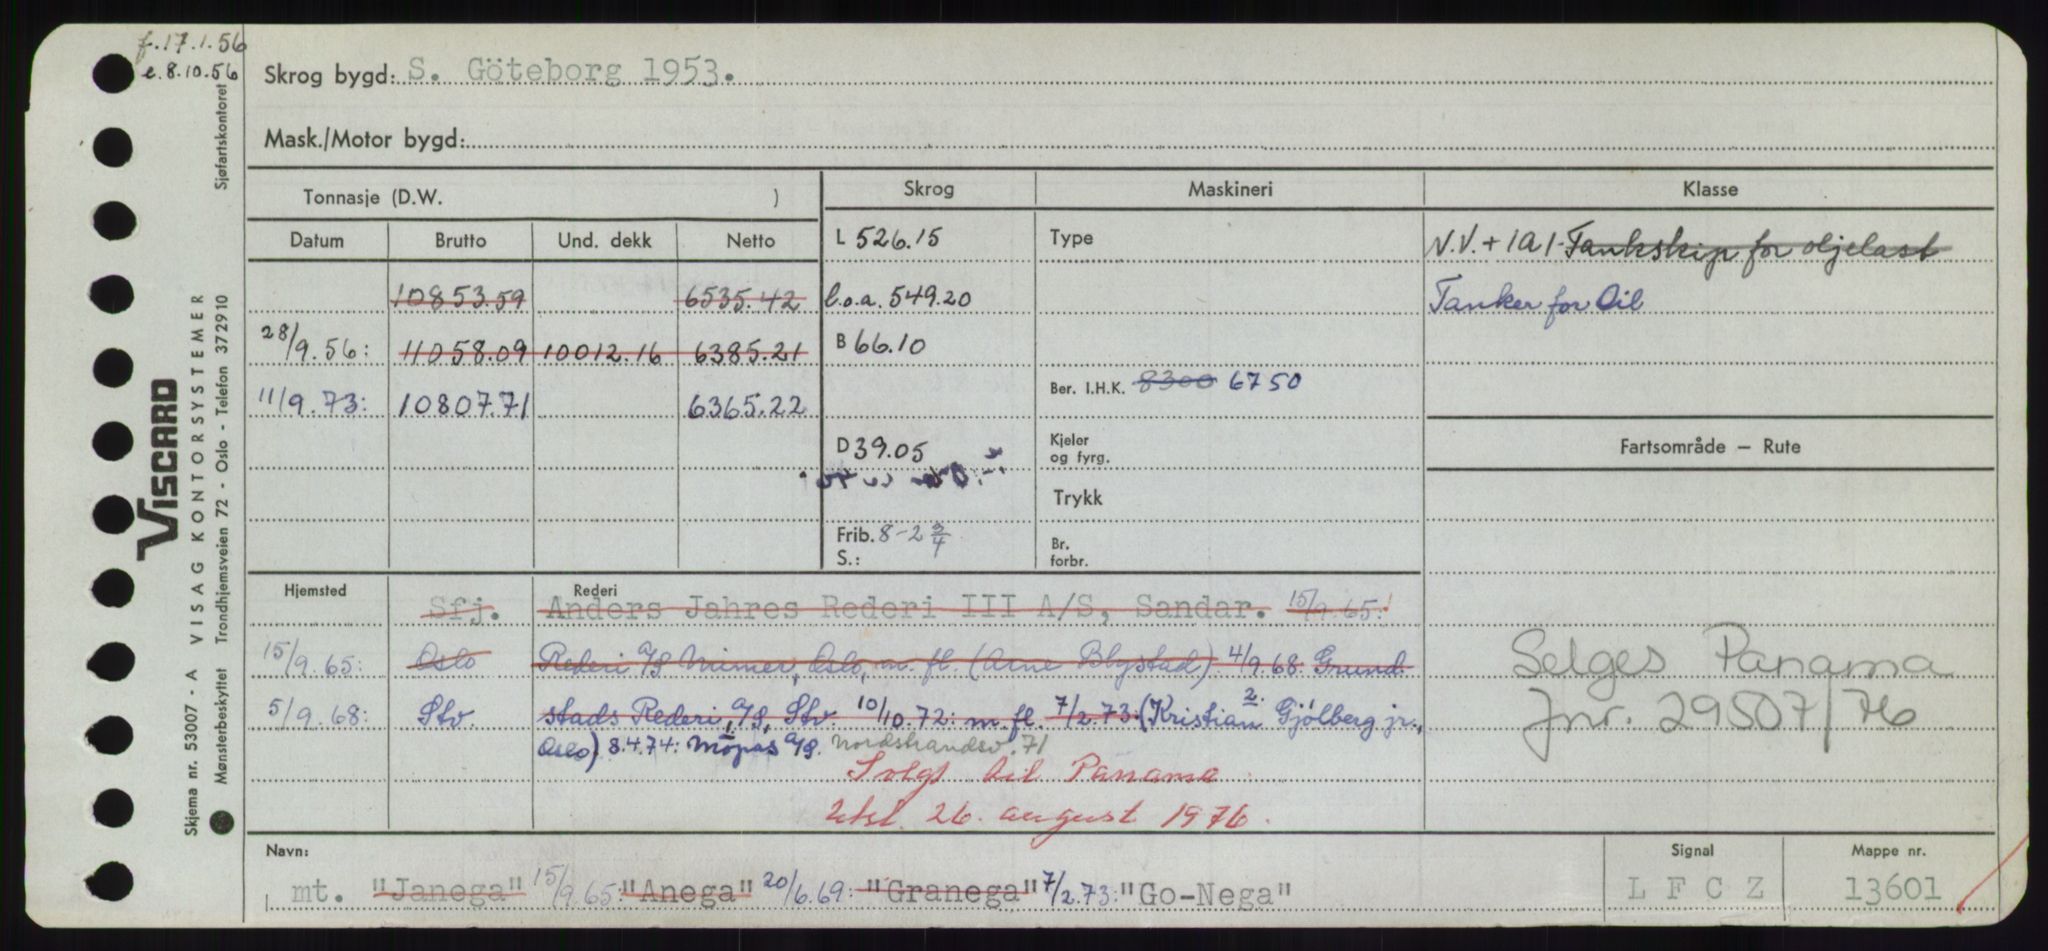 f.17.1.56
e.8.10.56
Skrog bygd: S. Göteborg 1953.
Mask./Motor bygd:
Tonnasje (D.W. )
Skrog
Maskineri
Klasse
Datum Brutto Und. dekk Netto
L 526.15
Type
N.V. + 1A1-Tankskip for oljelast
10853.59 6535.42
l.o.a. 549.20
Tanker for Oil
28/9.56: 11058.09 10012.16 6385.21
B 66.10
Ber. I.H.K. 8300 6750
11/9.73: 10807.71 6365.22
D 39.05
Kjeler og fyrg.
Fartsområde – Rute
Trykk
Frib. 8-2 3/4
S.:
Br. forbr.
Hjemsted
Rederi
Sfj. Anders Jahres Rederi III A/S, Sandar. 15/9.65:
15/9.65: Oslo Rederi A/S Mimer, Oslo, m. fl. (Arne Blystad). 4/9.68 Grund
5/9.68: Stv. stads Rederi, A/S, Stv. 10/10.72: m. fl. 7/2.73: (Kristian 2. Gjølberg jr.,
Oslo) 8.4.74: Møpas A/S. Nordstrandsv. 71
Solgt til Panama
Utsl. 26. august 1976.
Selges Panama
Jnr. 29507/76
Navn:
Signal
Mappe nr.
mt. "Janega" 15/9.65: "Anega" 20/6.69: "Granega" 7/2.73: "Go-Nega"
L F C Z
13601
VISCARD
Skjema nr. 53007 - A VISAG KONTORSYSTEMER
Mønsterbeskyttet Trondhjemsveien 72 - Oslo - Telefon 372910 Sjøfartskontoret